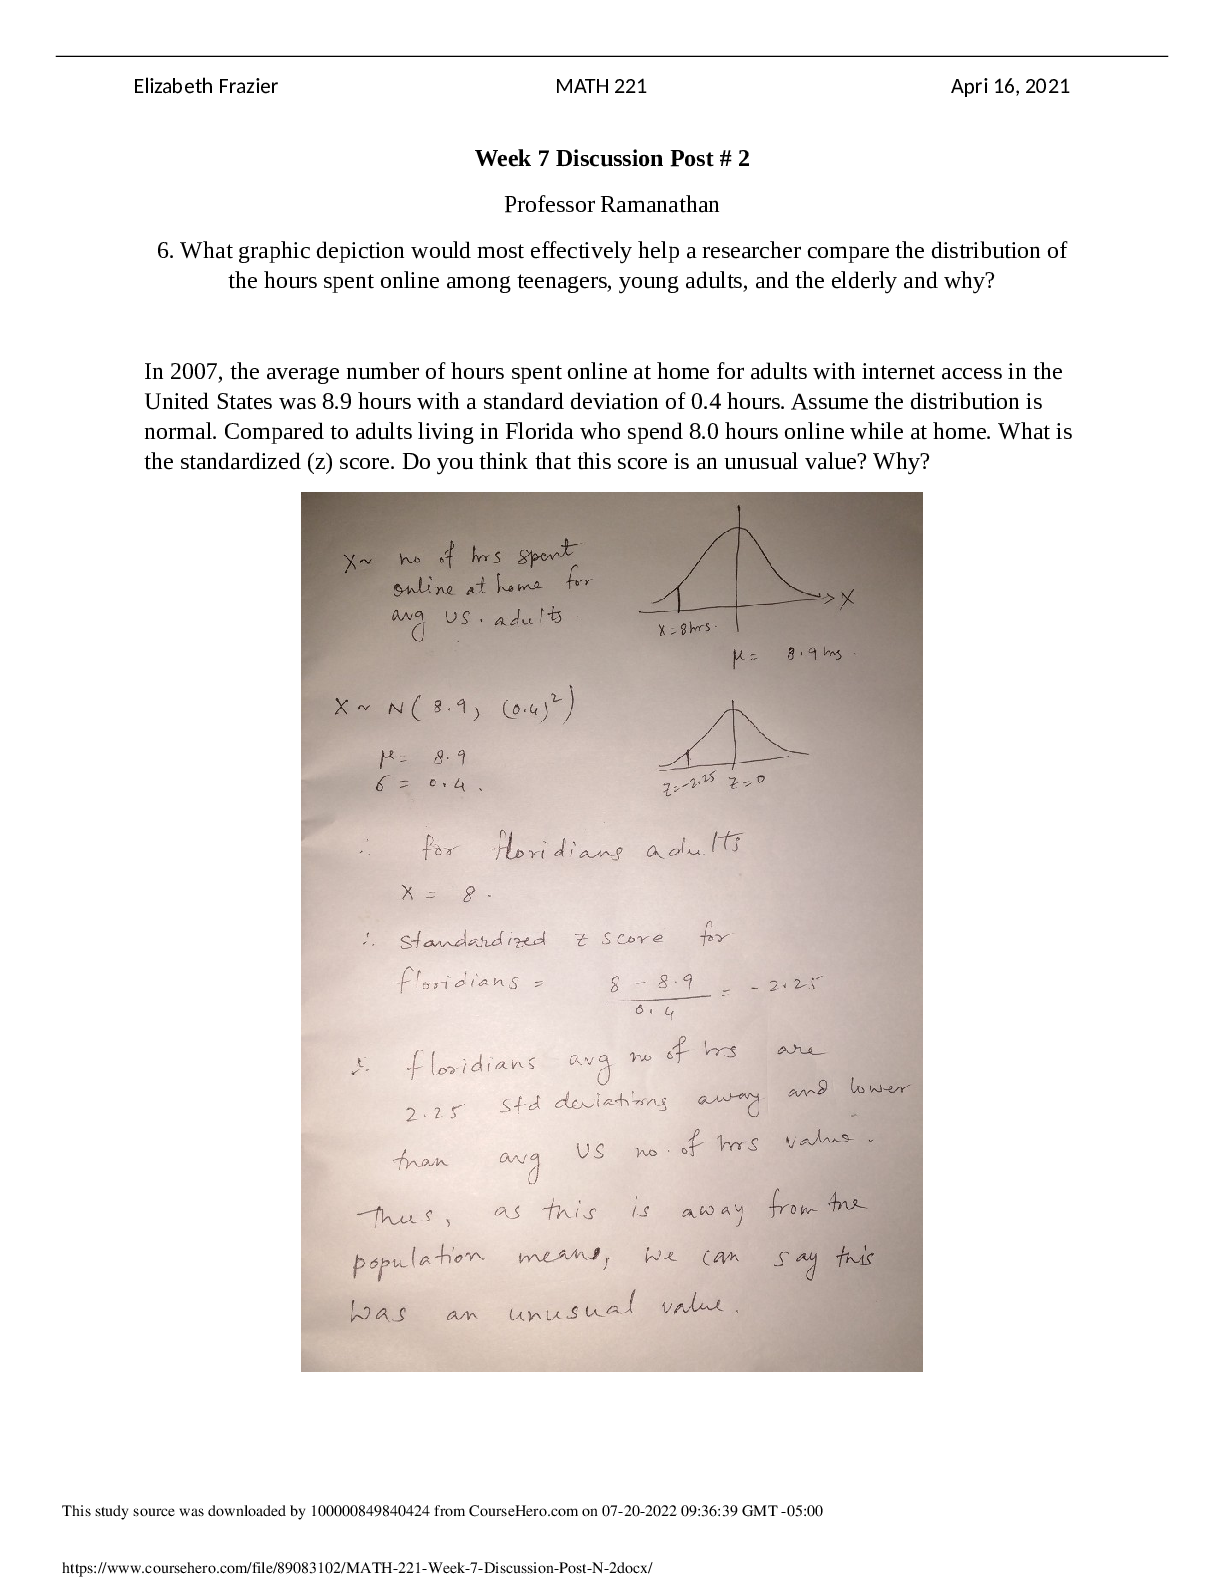 Elizabeth Frazier MATH 221 Apri 16, 2021
Week 7 Discussion Post # 2
Professor Ramanathan
6. What graphic depiction would most effectively help a researcher compare the distribution of
the hours spent online among teenagers, young adults, and the elderly and why?
In 2007, the average number of hours spent online at home for adults with internet access in the
United States was 8.9 hours with a standard deviation of 0.4 hours. Assume the distribution is
normal. Compared to adults living in Florida who spend 8.0 hours online while at home. What is
the standardized (z) score. Do you think that this score is an unusual value? Why?
X ~ no of hrs spent
online at home for
avg US. adults
X
x = 8 hrs.
μ = 8.9 hrs.
X ~ N( 8.9, (0.4)²)
μ = 8.9
σ = 0.4.
z=-2.25 z=0
∴ for floridians adults
X = 8.
∴ standardized z score for
floridians = 8 - 8.9 = - 2.25
0.4
∴ floridians avg no of hrs are
2.25 std deviations away and lower
than avg US no. of hrs value.
Thus, as this is away from the
population means, we can say this
was an unusual value.
This study source was downloaded by 100000849840424 from CourseHero.com on 07-20-2022 09:36:39 GMT -05:00
https://www.coursehero.com/file/89083102/MATH-221-Week-7-Discussion-Post-N-2docx/